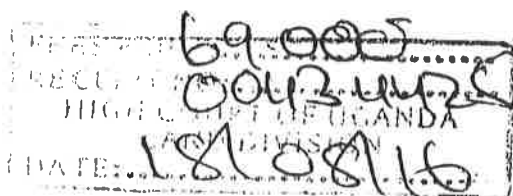 FEES 69.000
RECEIPT 0043442
HIGH COURT OF UGANDA
LAND DIVISION
DATE: 18/08/16